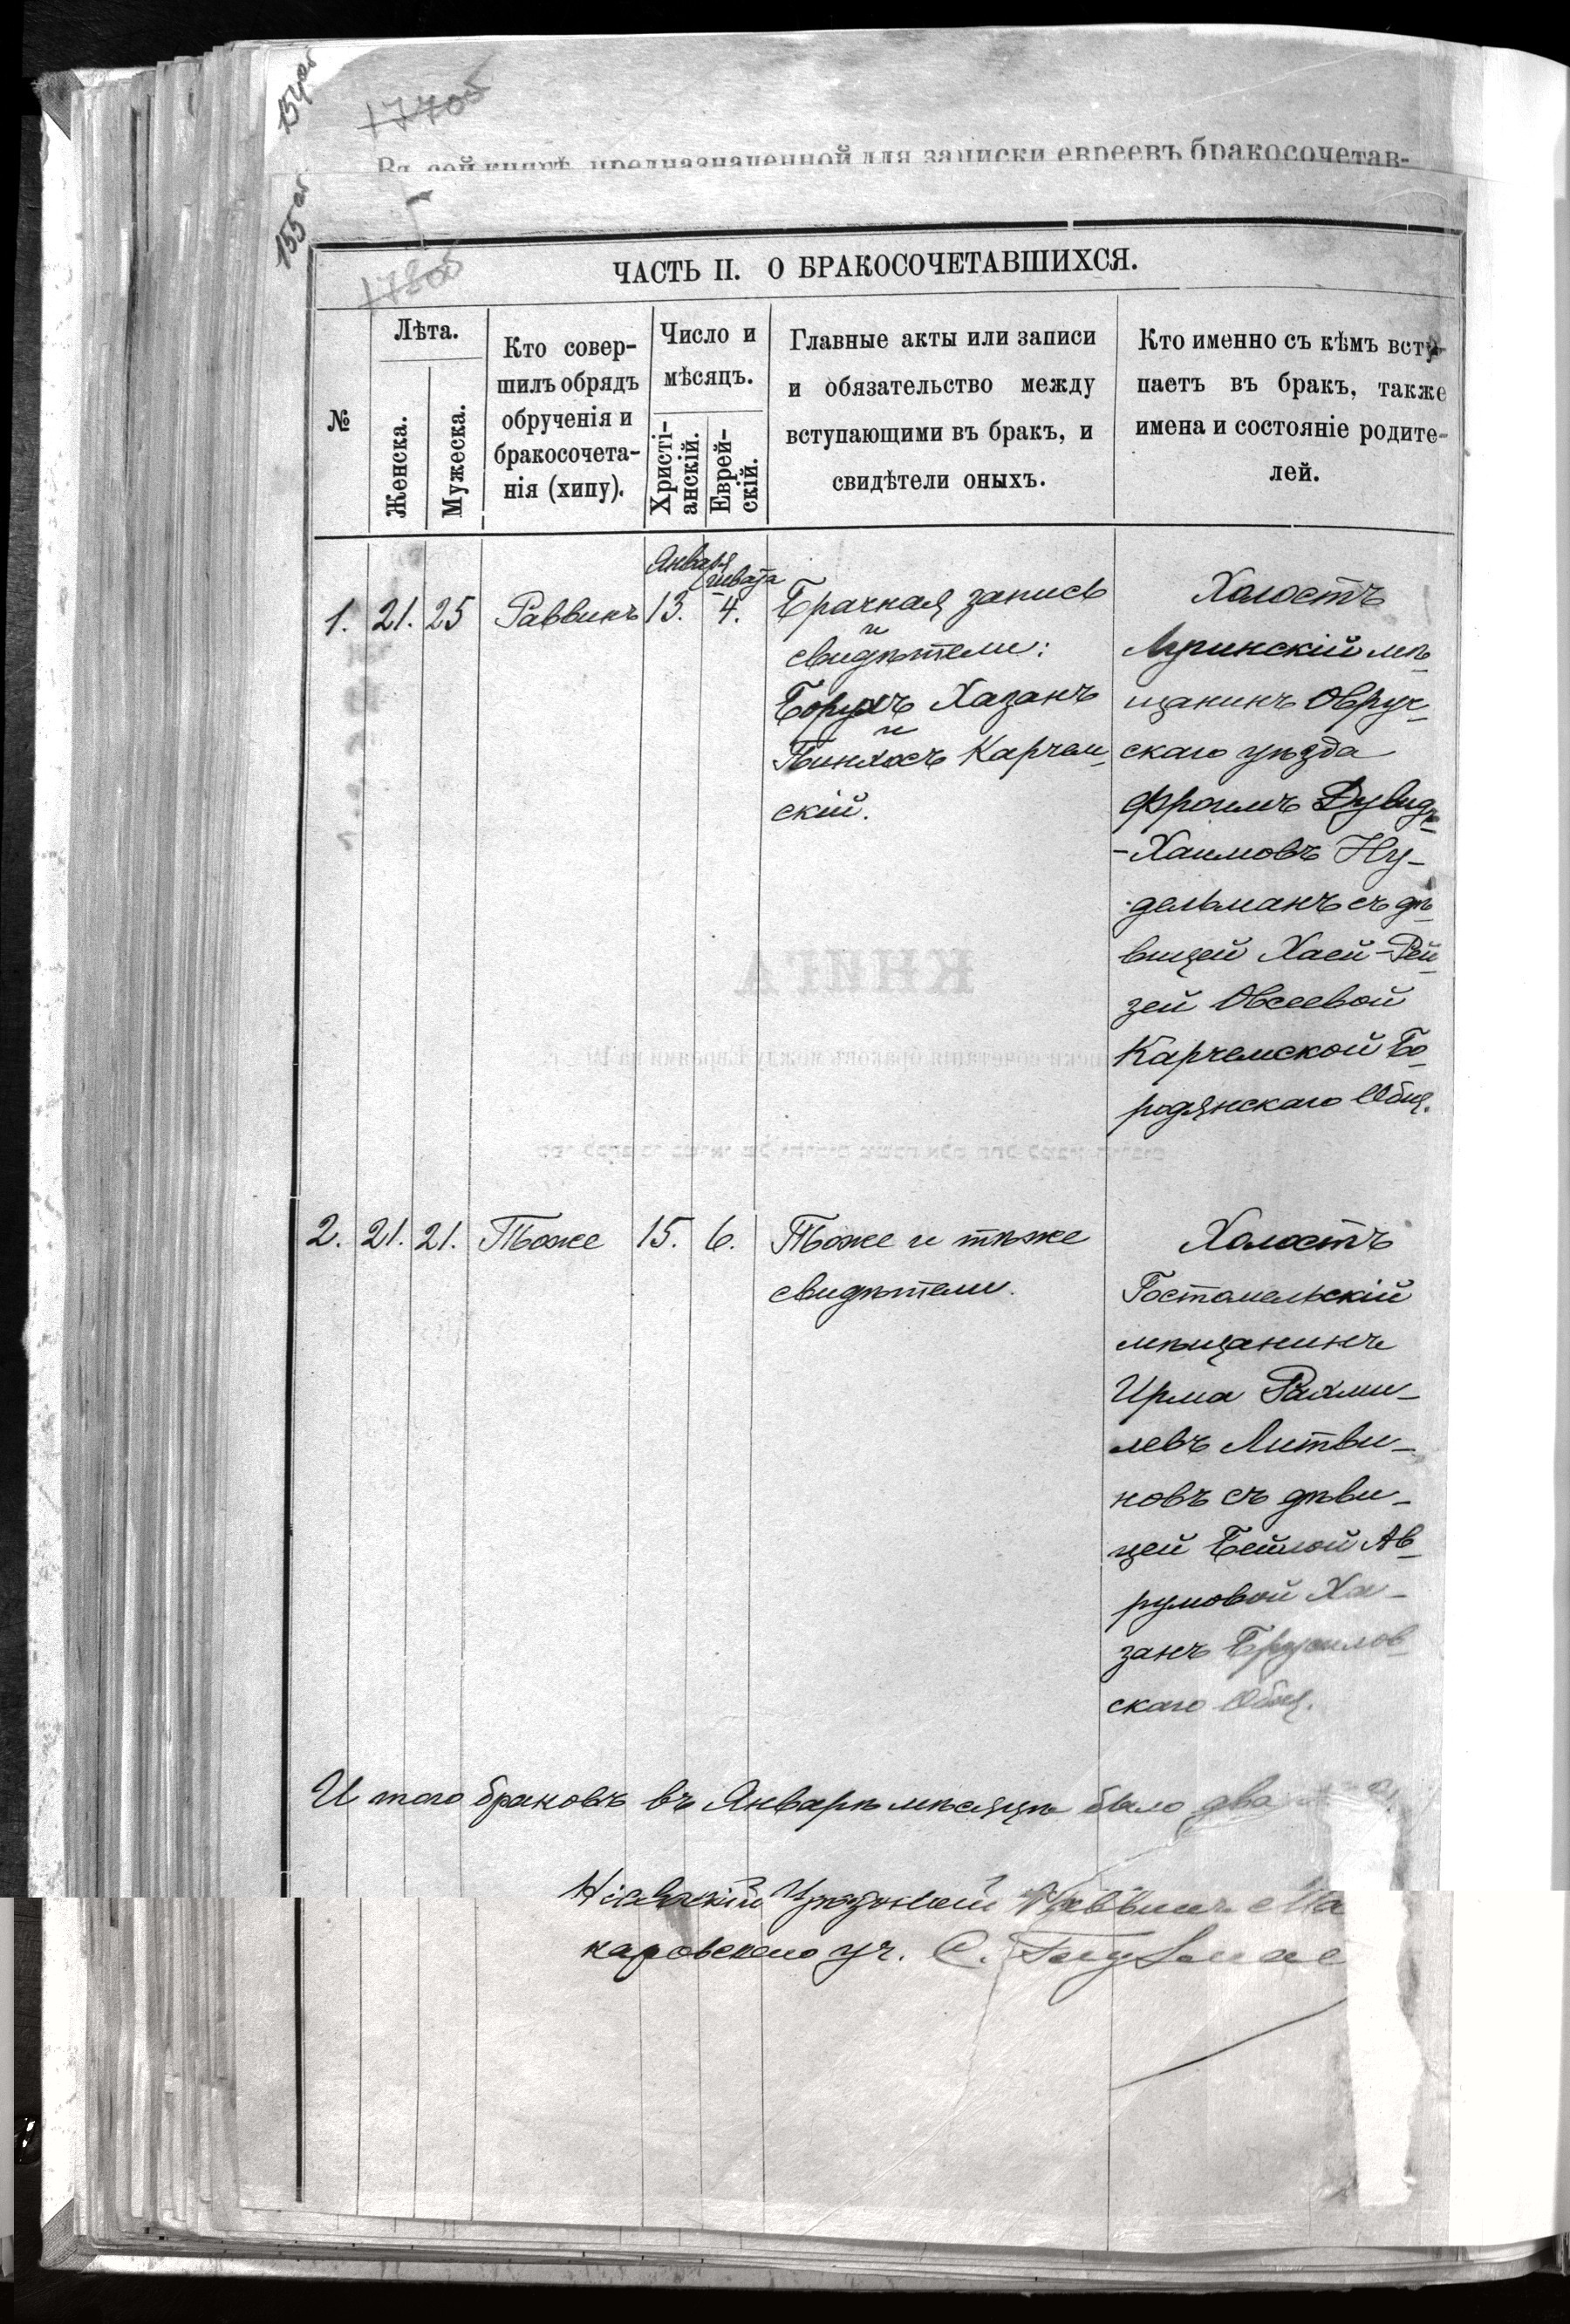 154об
17705
Въ сей книгѣ, предназначенной для записки евреевъ бракосочетав-
155об
17805
ЧАСТЬ II. О БРАКОСОЧЕТАВШИХСЯ.
№
Лѣта.
Женска.
Мужеска.
Кто совер-
шилъ обрядъ
обрученія и
бракосочета-
нія (хипу).
Число и
мѣсяцъ.
Христі-
анскій.
Еврей-
скій.
Главные акты или записи
и обязательство между
вступающими въ бракъ, и
свидѣтели оныхъ.
Кто именно съ кѣмъ всту-
паетъ въ бракъ, также
имена и состояніе родите-
лей.
Января
Шва­та
1. 21. 25 Раввинъ 13. 4.
Брачная запись
и
свидѣтели:
Борухъ Хазанъ
и
Пинхасъ Карчем-
скій.
Холостъ
мѣ-
щанинъ Овруч-
скаго уѣзда
Фроимъ Дувидъ-
-Хаимовъ Ну-
дельманъ съ дѣ-
вицей Хаей-Рей-
зей Овсеевой
Карчемской Бо-
родянскаго Общ.
КНИГА
2. 21. 21. Тоже 15. 6.
Тоже и тѣже
свидѣтели.
Холостъ
Гостомельскій
мѣщанинъ
Ирма Рахми-
левъ Литви-
новъ съ дѣви-
цей Бейлой Ав-
румовой Ха-
занъ Брусилов-
скаго Общ.
И того браковъ въ Январѣ мѣсяцѣ было два
Кіевскій Уѣздный Раввинъ Ма
каровскаго уч. С.